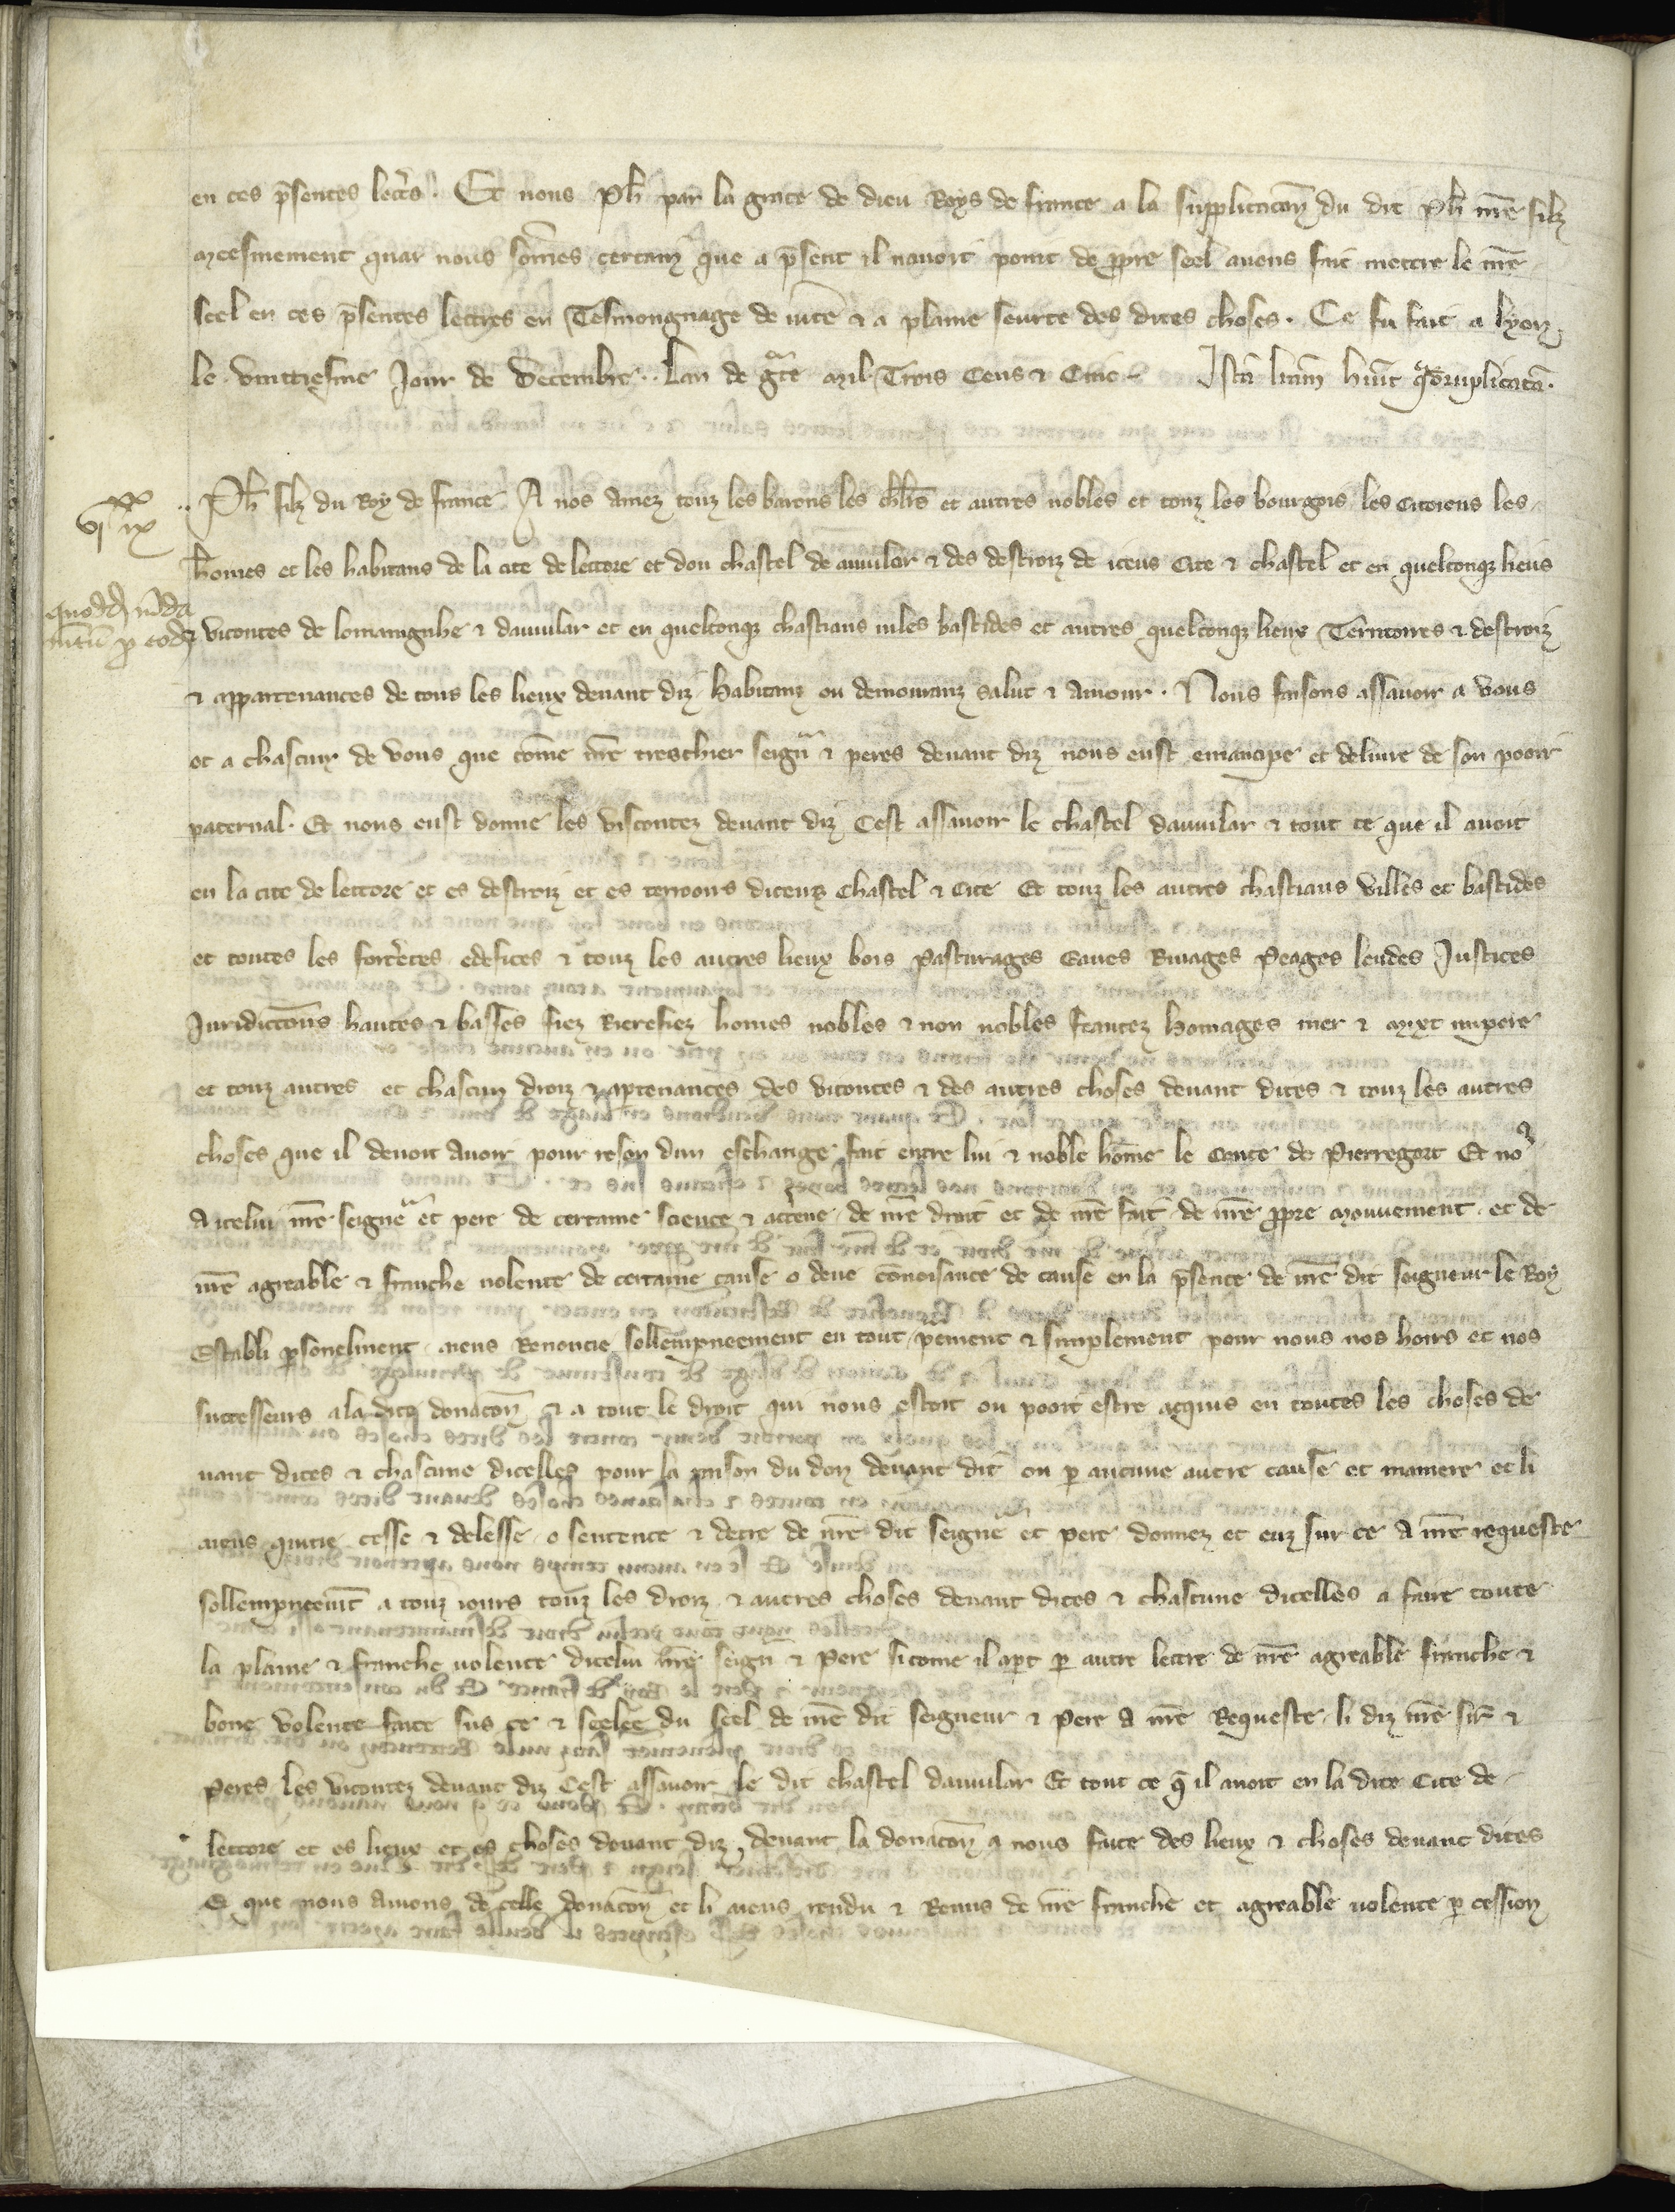 en ces p̄sentes lettr̄s. Et nous Ph̄ par la grace de dieu Roys de france a la supplicacōn du dit Ph̄ nr̄e filz
meesmement quar nous som̄es certain que a p̄sent il nauoit point de ꝓpre seel auens fait mettre le nr̄e
seel en ces p̄sentes lettres en Tesmongnage de ūite & a plaine seurte des dites choses. Ce fu fait a Lyon
le vinttiesme Jour de Decembre.. Lan de gr̄ce mil Trois Cens & Cinc Ista lr̄am hūit qᵃdruplicatā.
vj ˣˣ ix
.. Ph̄ filz du Roy de france A nos amez touz les barons les chlr̄s et autres nobles et touz les bourgois les citoiens les
hom̄es et les habitans de la cite de lettore et dou chastel de auuilar & des destroiz de iceus Cite & chastel et en quelconqz lieus
vicontes de lomaingnhe & dauuilar et en quelconqz chastiaus uiles bastides et autres quelconqz lieux Territoires & destroiz
& appartenances de tous les lieux deuant diz habitanz ou demouranz salut & amour. Nous faisons assauoir a vous
et a chascun de vous que com̄e nr̄e treschier seignʳ & peres deuant diz nous eust emancipe et deliure de son pooir
paternal. Et nous eust donne les viscontez deuant diz Cest assauoir le chastel dauuilar & tout ce que il auoit
en la cite de lettore et es destroiz et es teroours diceux Chastel & Cite Et touz les autres chastiaus villes et bastides
et toutes les fort̄eces edefices & touz les autres lieux bois Pasturages Eaues Riuages Peages leudes Justices
Juridictōns hautes & basses fiez Rierefiez homes nobles & non nobles francez Homages mer & mixt impere
et touz autres et chascun droiz & aptenances des vicontes & des autres choses deuant dites & touz les autres
choses que il deuoit auoir pour reson dun eschange fait entre lui & noble hom̄e le Conte de Pierregort Et noꝰ
A icelui nr̄e seigneʳ et pere de certaine science & acc̄tene de nr̄e droit et de nr̄e fait de nr̄e ꝓpre mouuement et de
nr̄e agreable & franche uolente de certaine cause o deue cōnoisance de cause en la p̄sence de nr̄e dit seigneur le Roy
Establi ꝑsonelment aiens Renoncie sollempneement en tout pement & simplement pour nous nos hoirs et nos
successeurs a la dite donacōn & a tout le droit qui nous estoit ou pooit estre acquis en toutes les choses de
uant dites & chascune dicelles pour la raison du don deuant dit ou ꝑ aucune autre cause et maniere et li
aiens quitie cesse & delesse o sentence & decre de nr̄e dit seigneʳ et pere donnez et euz sur ce A nr̄e requeste
sollempneem̄t a touz iours touz les droiz & autres choses deuant dites & chascune dicelles a faire toute
la plaine & franche uolente dicelui nr̄e seignʳ & Pere si come il apt ꝑ autre lettre de nr̄e agreable franche &
bone volente faite sus ce & seelee du seel de nr̄e dit seigneur & Pere A nr̄e Requeste li diz nr̄e sir̄ &
Peres les vicontez deuant diz Cest assauoir le dit chastel dauuilar Et tout ce q̄ il auoit en la dite Cite de
lettore et es lieux et es choses deuant diz, deuant la donacōn a nous faite des lieux & choses deuant dites
Et que nous auions de celle donacōn et li aiens rendu & Remis de nr̄e franche et agreable uolente ꝑ cession